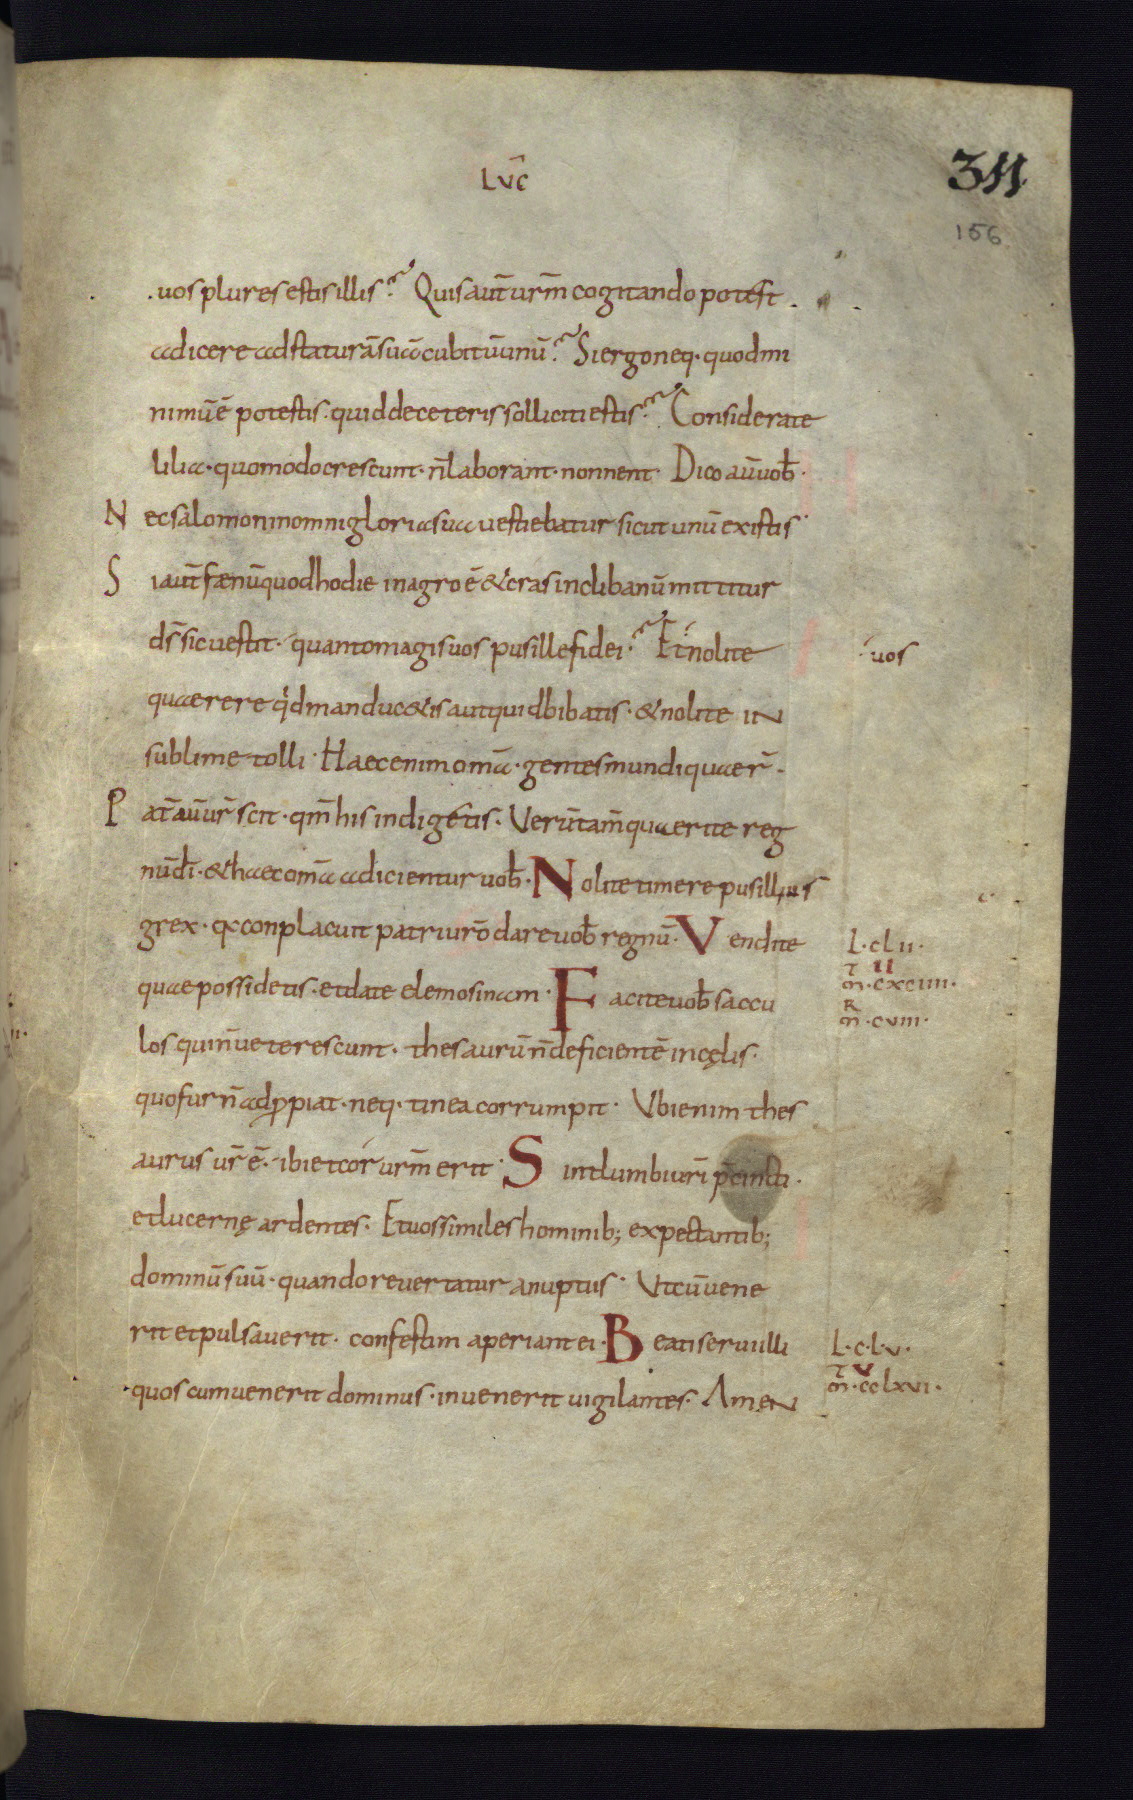 LVC̄
311
156
uos plures estis illis? Quis aut̄ ur̄m cogitando potest
adicere ad staturā suā cubitū unū? Si ergo neq· quod mi
nimū ē potestis· quid de ceteris solliciti estis? Considerate
lilia· quomodo crescunt· n̄ laborant· non nent· Dico aū uob̄·
Nec salomon in omni gloria sua uestiebatur sicut unū ex istis·
Si aut̄ fænū quod hodie in agro ē & cras in clibanū mittitur
ds̄ sic uestit· quanto magis uos pusille fidei? Et nolite
uos
quaerere qd manducetis aut quid bibatis· & nolite in
sublime tolli· Haec enim om̄a· gentes mundi quaer̄·
Pat̄ aū ur̄ scit· qm̄ his indigetis· Verūtam̄ quaerite reg
nū dī· & haec om̄a adicientur uob̄· Nolite timere pusillus
grex· qa conplacuit patri ur̄o dare uob̄ regnū· Vendite
L·clii·
quae possidetis· et date elemosinam· Facite uob̄ saccu
II
m̄·cxciiii·
R
m̄·cviii·
los qui n̄ ueterescunt· thesaurū n̄ deficientē in cęlis·
quo fur n̄ adpropiat· neq· tinea corrumpit· Vbi enim thes
aurus ur̄ ē· ibi et cor ur̄m erit· Sint lumbi ur̄i p̄cincti·
et lucernę ardentes· Et uos similes hominib; expectantib;
dominū suū· quando reuertatur a nuptiis· Vt cū uene
rit et pulsauerit· confestim aperiant ei· Beati serui illi
L·c·lv·
quos cum uenerit dominus· inuenerit uigilantes· Amen
V
m̄·cclxvi·